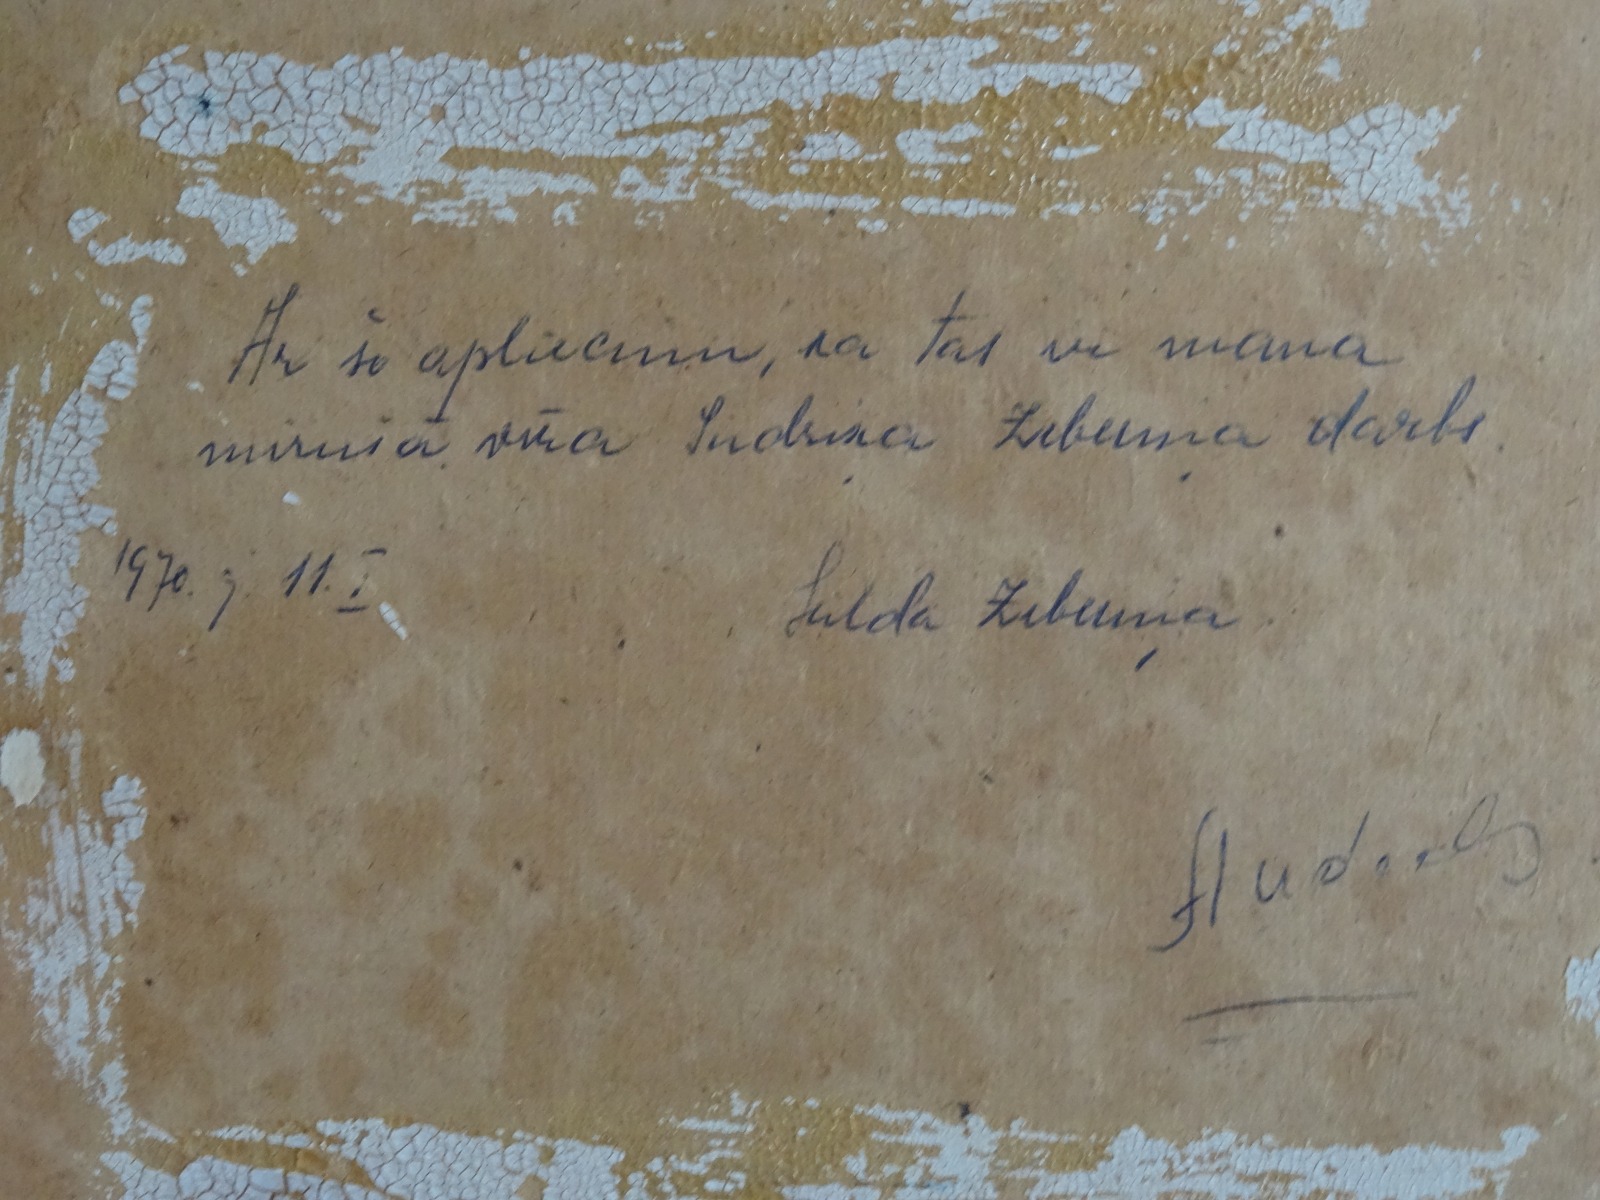 Ar šo apliecinu, ka tas ir mana
mirušā vīra Indriķa Zeberiņa darbs.
1970. g. 11. I
Zeberiņa